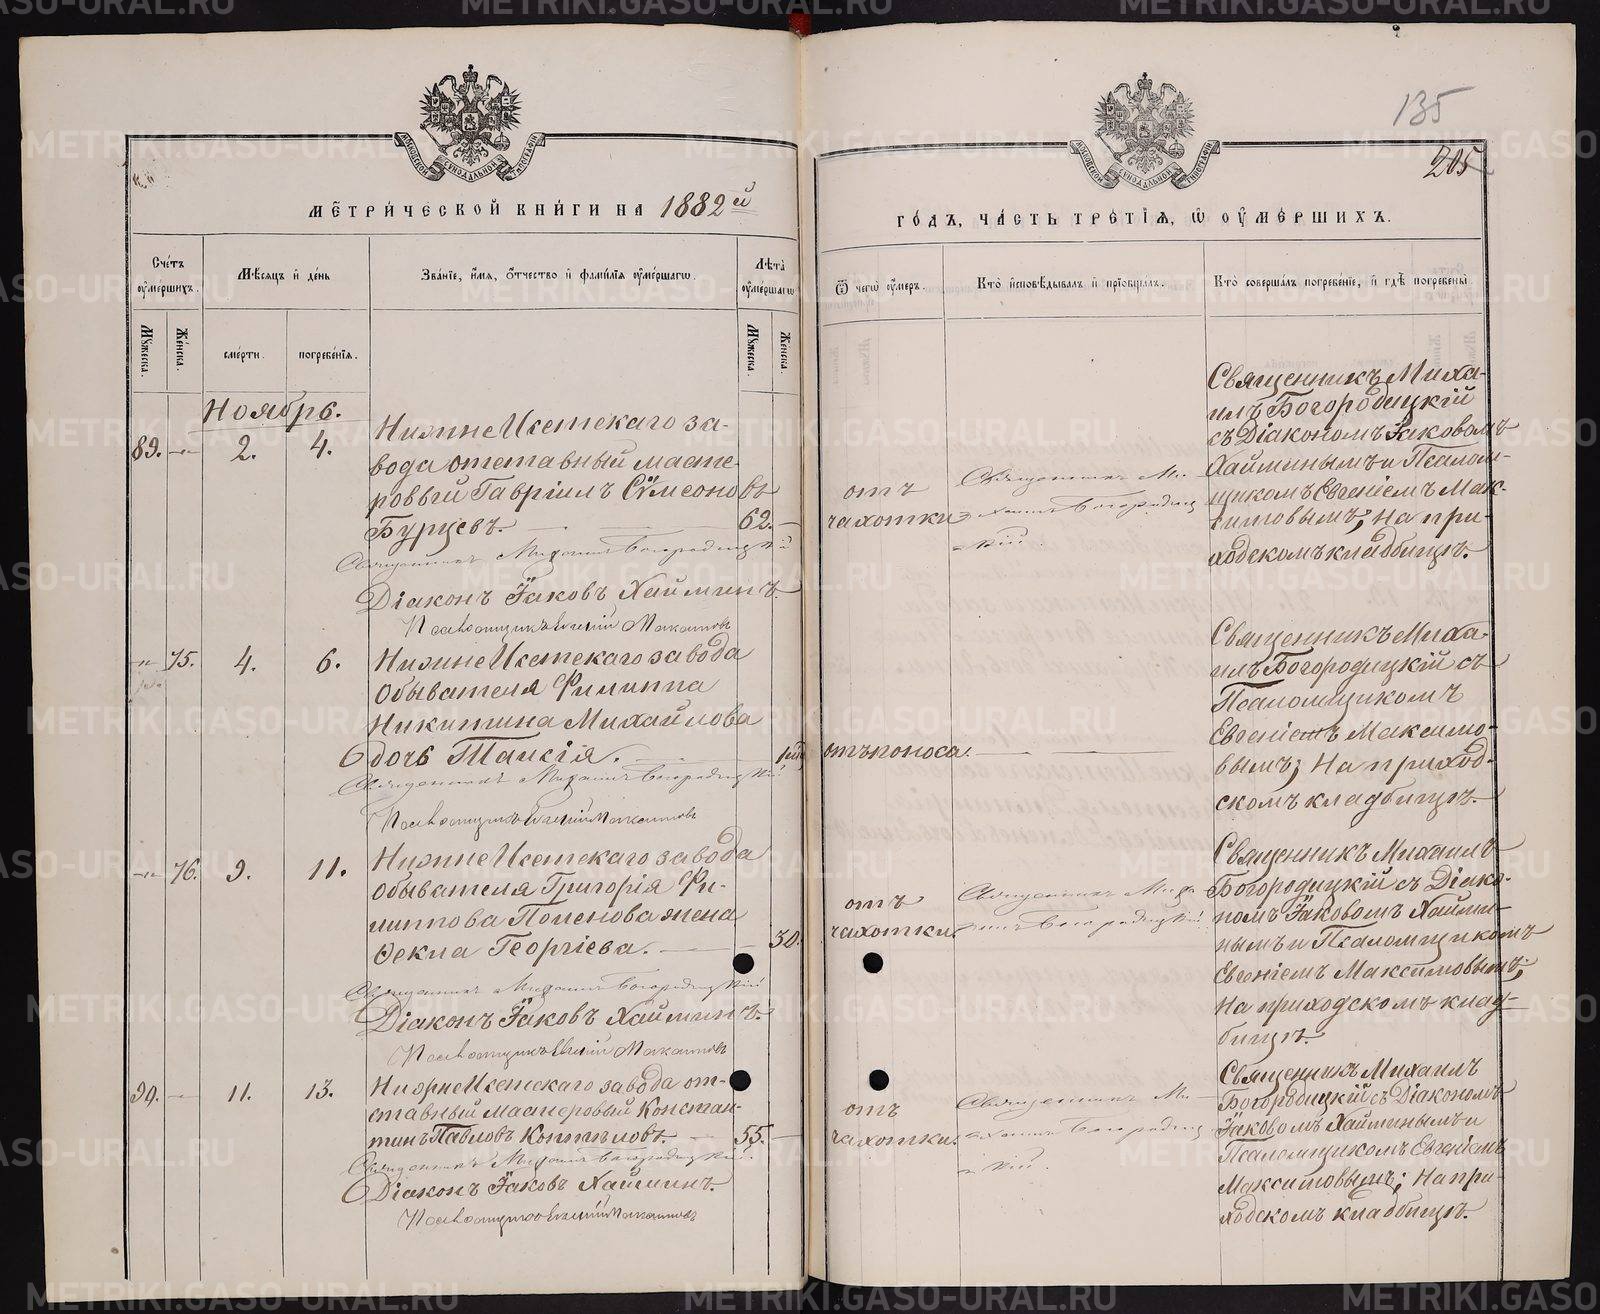 135
205
МЕТРИЧЕСКОЙ КНИГИ НА 1882й
ГОДЪ, ЧАСТЬ ТРЕТІЯ, Ѿ ОУМЕРШИХЪ.
Счетъ оумершихъ.
Мѣсяцъ и день
Званіе, имя, отчество и фамилія оумершагω.
Лѣта оумершагω
Мꙋжеска.
Женска.
смерти.
погребенія.
Мꙋжеска.
Женска.
Ѿ чегω оумеръ.
Кто исповѣдывалъ и пріобщалъ.
Кто совершалъ погребеніе, и гдѣ погребены.
Ноябрь.
89. 2. 4.
НижнеИсетскаго за-
вода отставный масте-
ровый Гавріилъ Сѵмеоновъ
Бурцевъ. 62.
Священникъ Михаилъ Богородицкій
Діаконъ Іаковъ Хайминъ.
Псаломщикъ Евгеній Максимовъ
отъ
чахотки
Священникъ Ми-
хаилъ Богородиц-
кій.
Священникъ Миха-
илъ Богородицкій
съ Діакономъ Іаковомъ
Хайминымъ и Псалом-
щикомъ Евгеніемъ Мак-
симовымъ; На при-
ходскомъ кладбищѣ.
75. 4. 6.
НижнеИсетскаго завода
обывателя Филиппа
Никитина Михайлова
дочь Таисія.
Священникъ Михаилъ Богородицкій
Псаломщикъ Евгеній Максимовъ
отъ поноса.
Священникъ Миха-
илъ Богородицкій съ
Псаломщикомъ
Евгеніемъ Максимо-
вымъ; На приход-
скомъ кладбищѣ.
76. 9. 11.
НижнеИсетскаго завода
обывателя Григорія Фи-
липпова жена
Ѳекла Георгіева. 30.
Священникъ Михаилъ Богородицкій
Діаконъ Іаковъ Хайминъ.
Псаломщикъ Евгеній Максимовъ
отъ
чахотки.
Священникъ Миха-
илъ Богородицкій.
Священникъ Михаилъ
Богородицкій съ Діако-
номъ Іаковомъ Хайми-
нымъ и Псаломщикомъ
Евгеніемъ Максимовымъ;
На приходскомъ клад-
бищѣ.
90. 11. 13.
НижнеИсетскаго завода от-
ставный мастеровый Констан-
тинъ Павловъ 55.
Священникъ Михаилъ Богородицкій.
Діаконъ Іаковъ Хайминъ.
Псаломщикъ Евгеній Максимовъ
отъ
чахотки.
Священникъ Ми-
хаилъ Богородиц-
кій.
Священникъ Михаилъ
Богородицкій съ Діакономъ
Іаковомъ Хайминымъ и
Псаломщикомъ Евгеніемъ
Максимовымъ; На при-
ходскомъ кладбищѣ.
METRIKI.GASO-URAL.RU